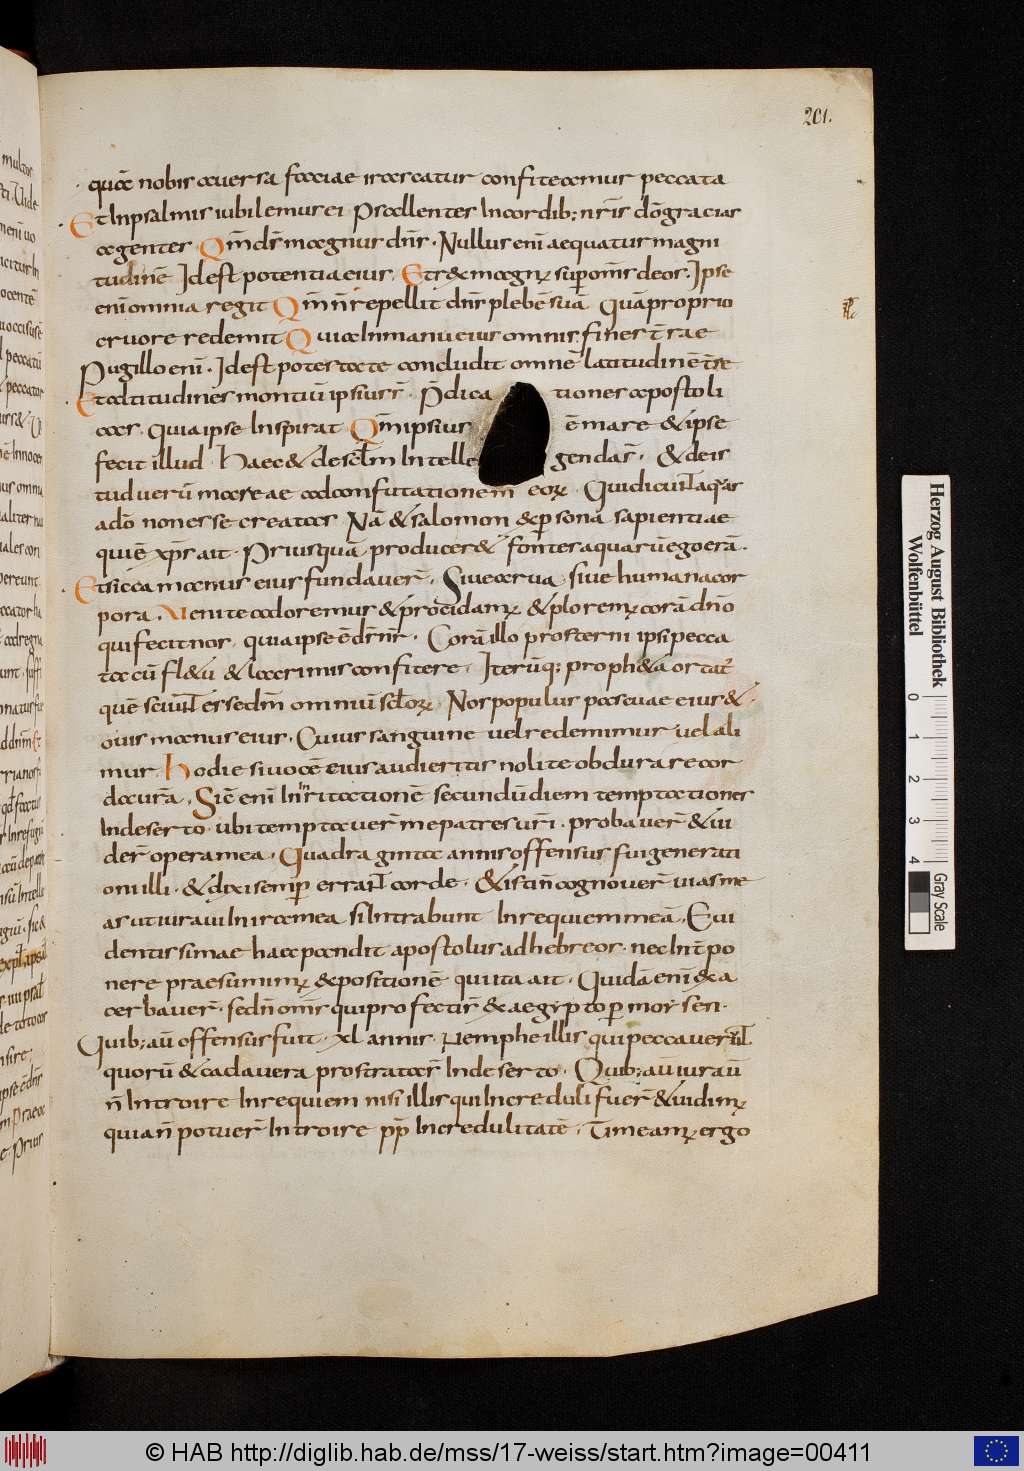 201.
quae nobis aduersa faciae irascatur confiteamur peccata
Et In psalmis iubilemur ei Psallenter In cordib; nr̄is dō gracias
agenter Qm̄ dr̄ magnus dnr̄. Nullus enī aequatur magni
tudinē Idest potentia eius. Et rex magnꝰ sup omnr̄ deos. Ipse
enī omnia regit Qm̄ n̄ repellit dnr̄ plebē suā Quā proprio
cruore redemit Quia In manu eius omnis fines t̄rae
Pugillo enī. Idest potestate concludit omnē latitudinē t̄re
Et altitudines montiū ipsius r̄. P̄dica tiones apostoli
cas. quia ipse Inspirat Qm̄ ipsius ē mare & ipse
fecit illud Haec & de sc̄lm Intelle gendar̄. & deis
tud uerū mare ae ad confutationem eoꝝ. Qui dicun̄t aquas
adō non esse creatas Nā & salomon ex p̄sona sapientiae
qui ē xp̄s ait. Priusquā producer& fontes aquarū ego erā.
Et sicca manus eius fundauer̄. Siue arua siue humana cor
pora. Uenite adoremus & procidamꝰ & ploremꝰ corā dn̄o
qui fecit nos. quia ipse ē dr̄ nr̄. Corā illo prosterni ipsi pecca
ta cū fl&u & lacrimis confitere. Iterūq; proph&a ortat̄
quē sciun̄t es sedm̄ omniū sc̄loꝝ Nos populus pascuae eius &
ouis manus eius. Cuius sanguine uel redemimur uel ali
mur. Hodie si uocē eius audieritis nolite obdurare cor
da ura. Sic enī In Irritationē secundū diem temptationes
In deserto. ubi temptauer̄ me patres urī. probauer̄ & ui
der̄ opera mea. Quadraginta annis offensus fui generati
oni illi. & dixi semp erran̄t corde. & isti n̄ cognouer̄ uias me
as ut iuraui In ira mea si Intrabunt In requiem meā. Eui
dentissimae haec pandit apostolus ad hebreos. nec Int̄po
nere praesumimꝰ expositionē qui ita ait. Quidā enī exa
cerbauer̄. sed n̄ omr̄ qui profectir̄ ex aegypto p moysen.
Quib; aū offensus fuit. xl annis. Nempe illis qui peccauer̄n̄t
quorū & cadauera prostrata sr̄ In deserto. Quib; aū iurauī
n̄ Introire In requiem nisi illis qui Increduli fuer̄ & uidimꝰ
quia n̄ potuer̄ Introire pp̄ Incredulitatē. Timeamꝰ ergo
Herzog August Bibliothek
Wolfenbüttel
0 1 2 3 4
Gray Scale
© HAB http://diglib.hab.de/mss/17-weiss/start.htm?image=00411